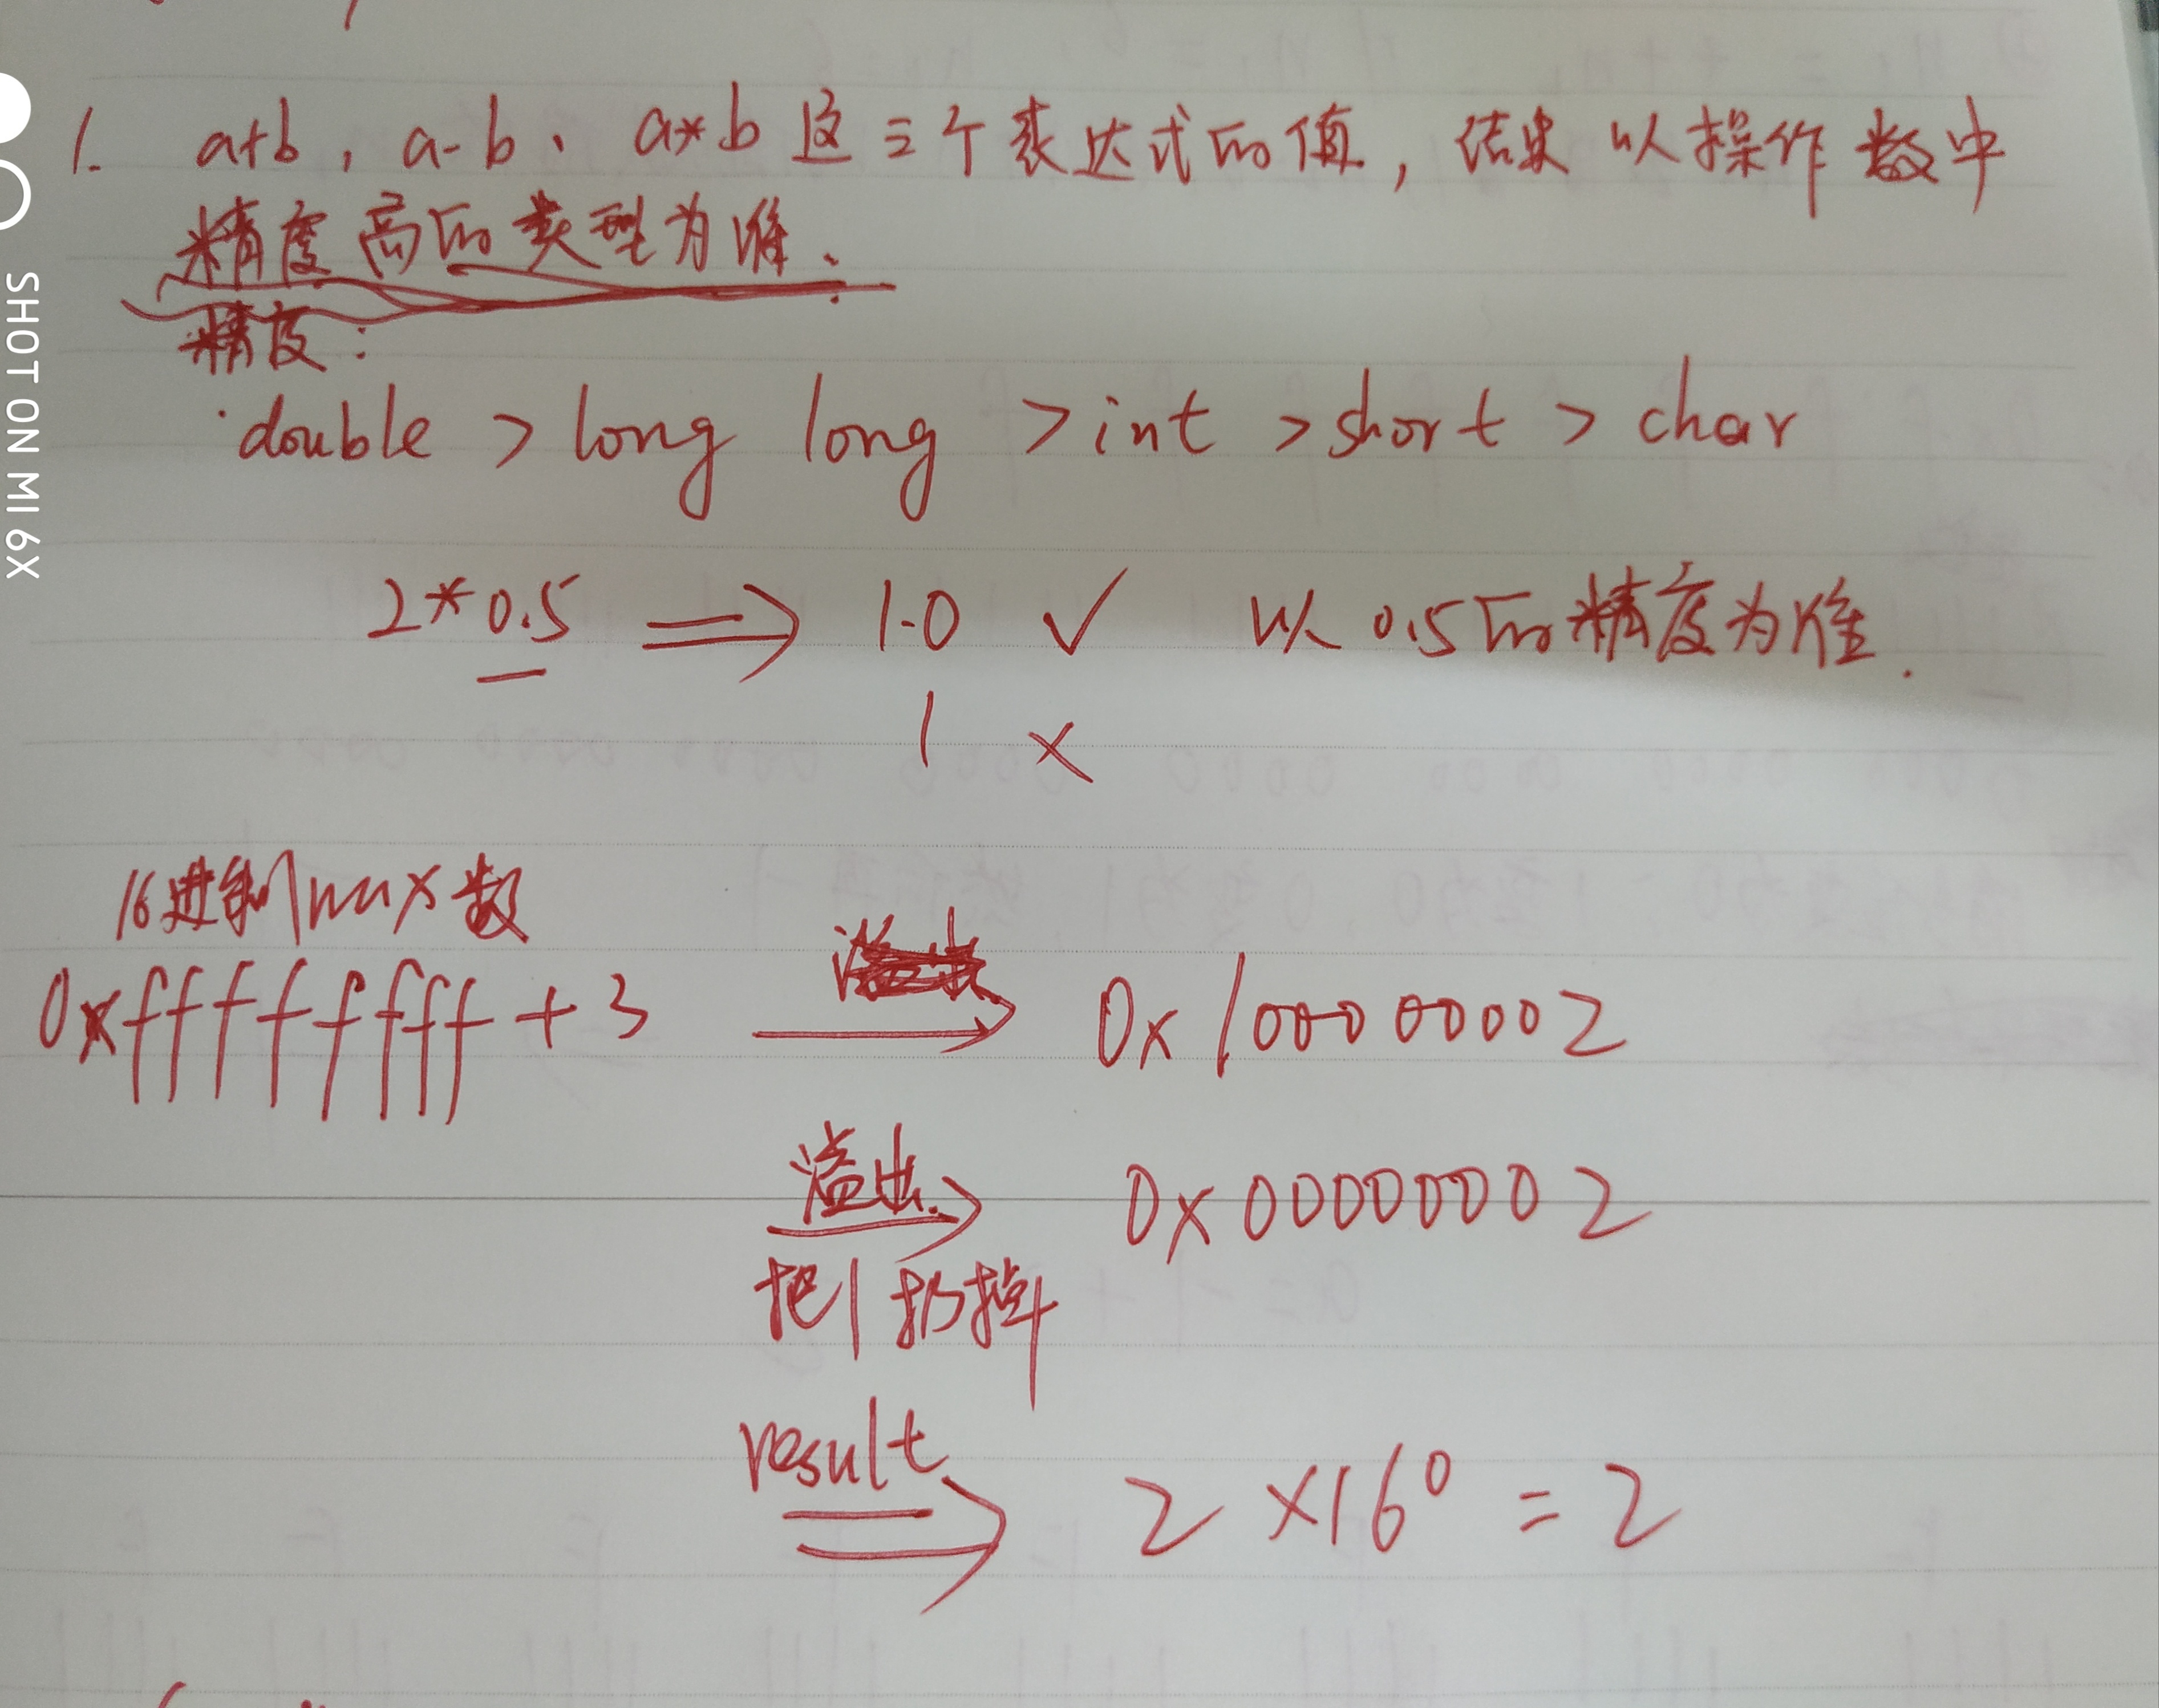 1. a+b, a-b、a*b 这三个表达式的值, 结果以操作数中
精度高的类型为准.
精度:
double > long long > int > short > char
2*0.5 ⇒ 1.0 ✓ 以0.5的精度为准.
1 ×
16进制max数
0xffffffff + 3 → 0x100000002
溢出 → 0x00000002
把1扔掉
result ⇒ 2 × 16⁰ = 2
SHOT ON MI 6X